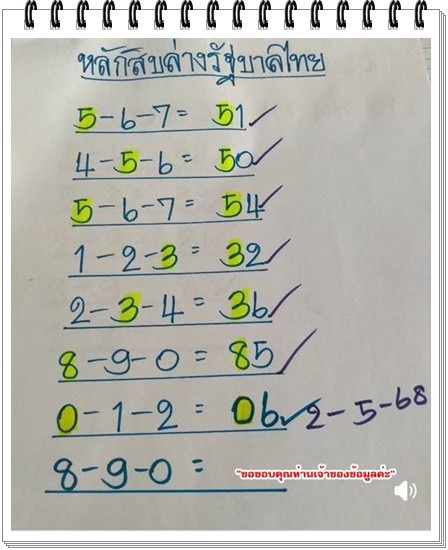 หลักสิบล่างรัฐบาลไทย
5-6-7= 51
4-5-6= 50
5-6-7= 54
1-2-3= 32
2-3-4= 36
8-9-0= 85
0-1-2= 06 2-5-68
8-9-0=
"ขอขอบคุณท่านเจ้าของข้อมูลค่ะ"